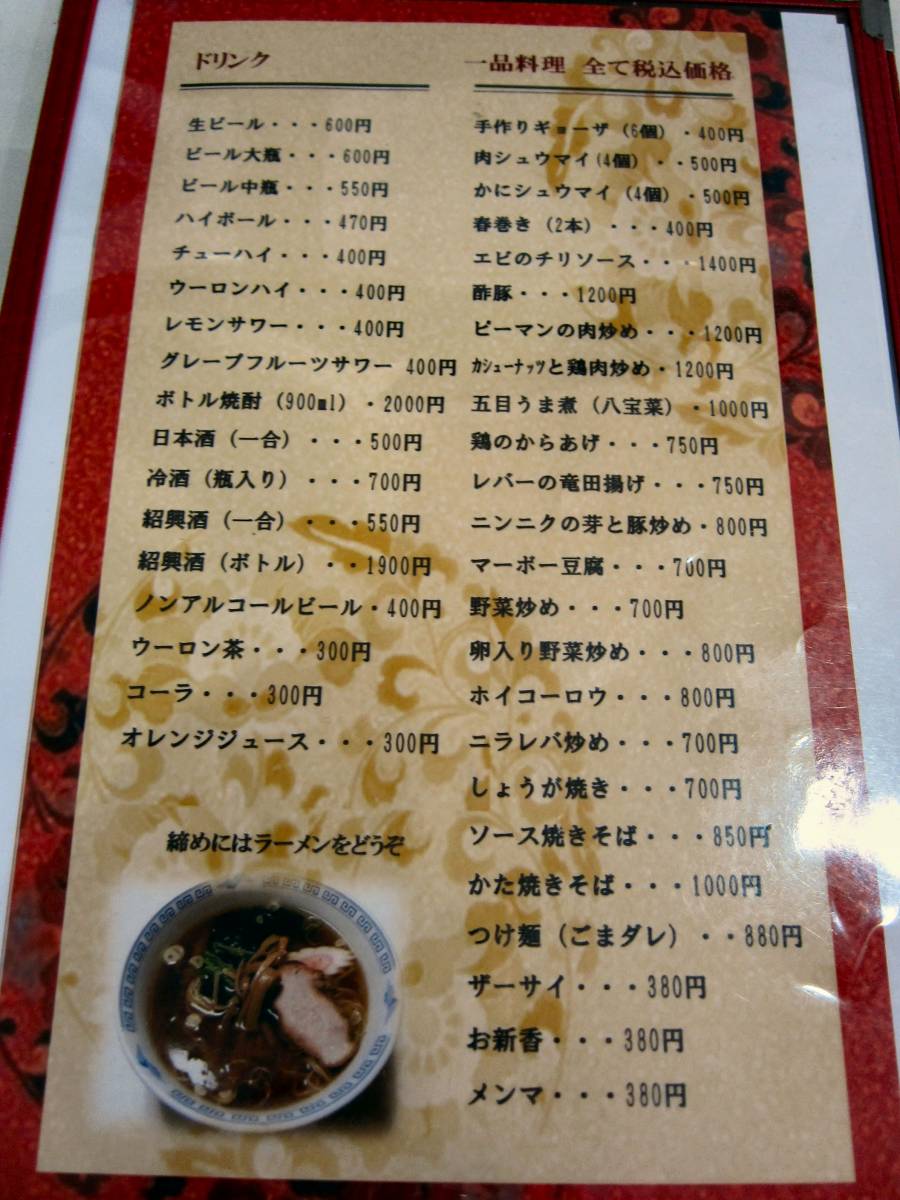 ドリンク
生ビール・・・600円
ビール大瓶・・・600円
ビール中瓶・・・550円
ハイボール・・・470円
チューハイ・・・400円
ウーロンハイ・・・400円
レモンサワー・・・400円
グレープフルーツサワー 400円
ボトル焼酎（900ml）・2000円
日本酒（一合）・・・500円
冷酒（瓶入り）・・・700円
紹興酒（一合）・・・550円
紹興酒（ボトル）・・1900円
ノンアルコールビール・400円
ウーロン茶・・・300円
コーラ・・・300円
オレンジジュース・・・300円
締めにはラーメンをどうぞ
一品料理 全て税込価格
手作りギョーザ（6個）・400円
肉シュウマイ(4個）・・500円
かにシュウマイ（4個）・500円
春巻き（2本）・・・400円
エビのチリソース・・・1400円
酢豚・・・1200円
ピーマンの肉炒め・・・1200円
ｶｼｭｰﾅｯﾂと鶏肉炒め・1200円
五目うま煮（八宝菜）・1000円
鶏のからあげ・・・750円
レバーの竜田揚げ・・・750円
ニンニクの芽と豚炒め・800円
マーボー豆腐・・・700円
野菜炒め・・・700円
卵入り野菜炒め・・・800円
ホイコーロウ・・・800円
ニラレバ炒め・・・700円
しょうが焼き・・・700円
ソース焼きそば・・・850円
かた焼きそば・・・1000円
つけ麺（ごまダレ）・・880円
ザーサイ・・・380円
お新香・・・380円
メンマ・・・380円